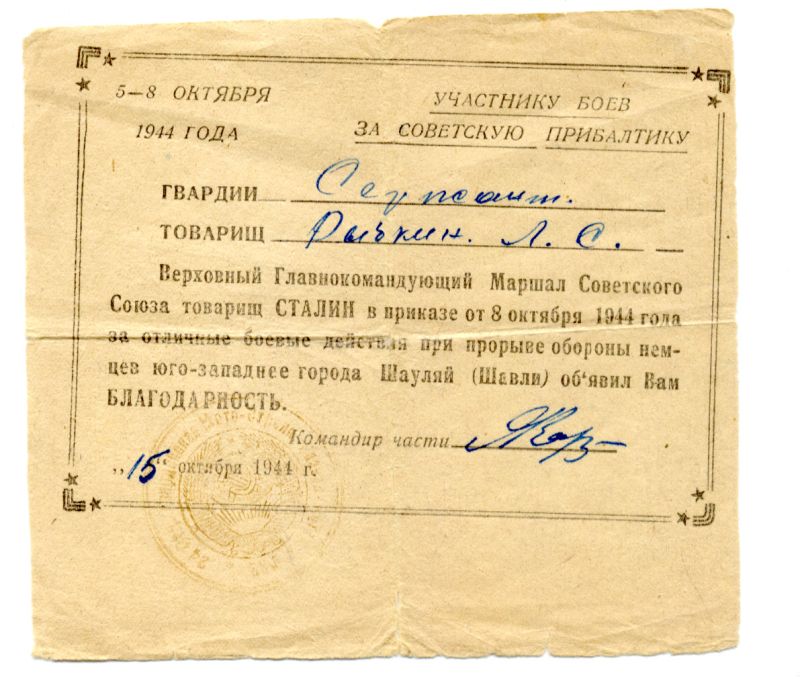 5–8 ОКТЯБРЯ
1944 ГОДА
УЧАСТНИКУ БОЕВ
ЗА СОВЕТСКУЮ ПРИБАЛТИКУ
ГВАРДИИ Сержант.
ТОВАРИЩ Рычкин. Л. С.
Верховный Главнокомандующий Маршал Советского
Союза товарищ СТАЛИН в приказе от 8 октября 1944 года
за отличные боевые действия при прорыве обороны нем-
цев юго-западнее города Шауляй (Шавли) об'явил Вам
БЛАГОДАРНОСТЬ.
Командир части
„15" октября 1944 г.